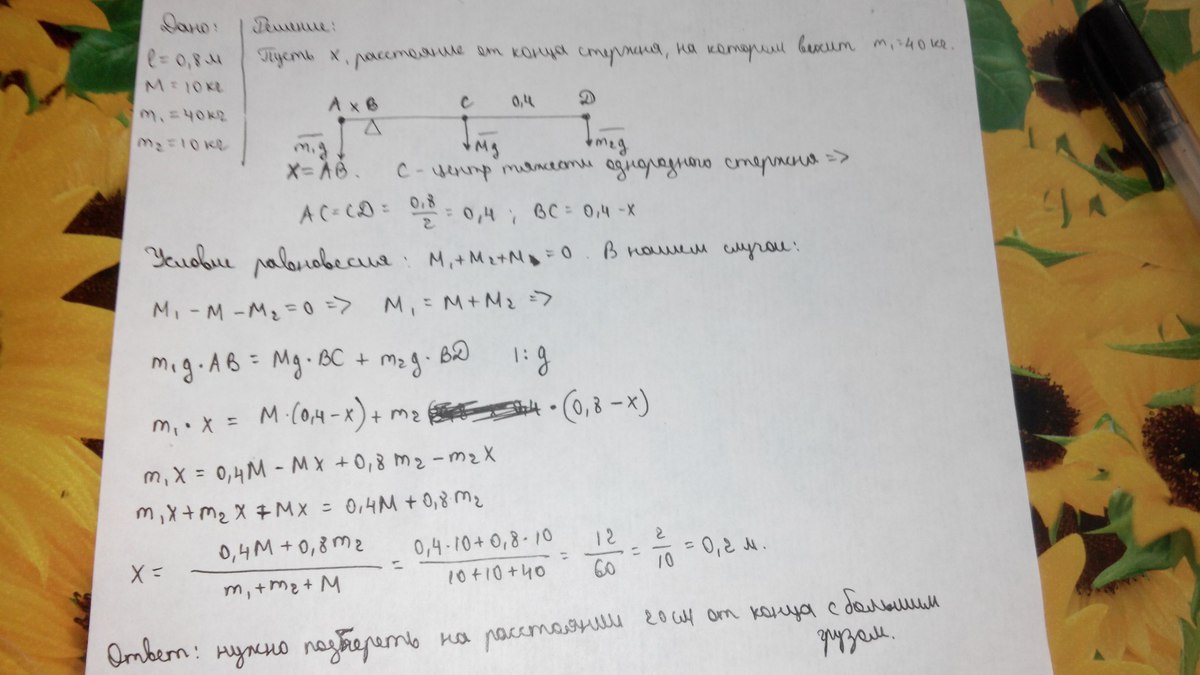 Дано:
l = 0,8 м
M = 10 кг
m₁ = 40 кг
m₂ = 10 кг
Решение:
Пусть x, расстояние от конца стержня, на котором висит m₁ = 40 кг.
A x B C 0,4 D
m₁g Mg m₂g
X = AB. C - центр тяжести однородного стержня =>
AC = CD = 0,8/2 = 0,4 ; BC = 0,4 - x
Условие равновесия: M₁ + M₂ + M = 0. В нашем случае:
M₁ - M - M₂ = 0 => M₁ = M + M₂ =>
m₁g · AB = Mg · BC + m₂g · BD |: g
m₁ · x = M · (0,4 - x) + m₂ · (0,8 - x)
m₁x = 0,4M - Mx + 0,8m₂ - m₂x
m₁x + m₂x + Mx = 0,4M + 0,8m₂
X = (0,4M + 0,8m₂)/(m₁ + m₂ + M) = (0,4·10 + 0,8·10)/(10 + 10 + 40) = 12/60 = 2/10 = 0,2 м.
Ответ: нужно на расстоянии 20 см от конца с большим
грузом.